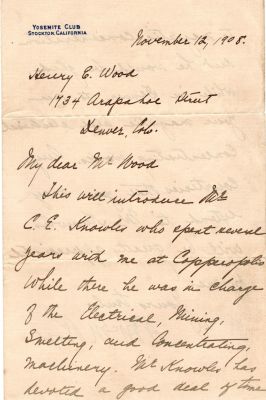 YOSEMITE CLUB
STOCKTON, CALIFORNIA
November 12, 1908.
Henry E. Wood
1734 Arapahoe Street
Denver, Colo.
My dear Mr Wood
This will introduce Mr
C. E. Knowles who spent several
years with me at Copperopolis
While there he was in charge
of the Electrical, Mining,
Smelting, and Concentrating,
machinery. Mr Knowles has
devoted a good deal of time